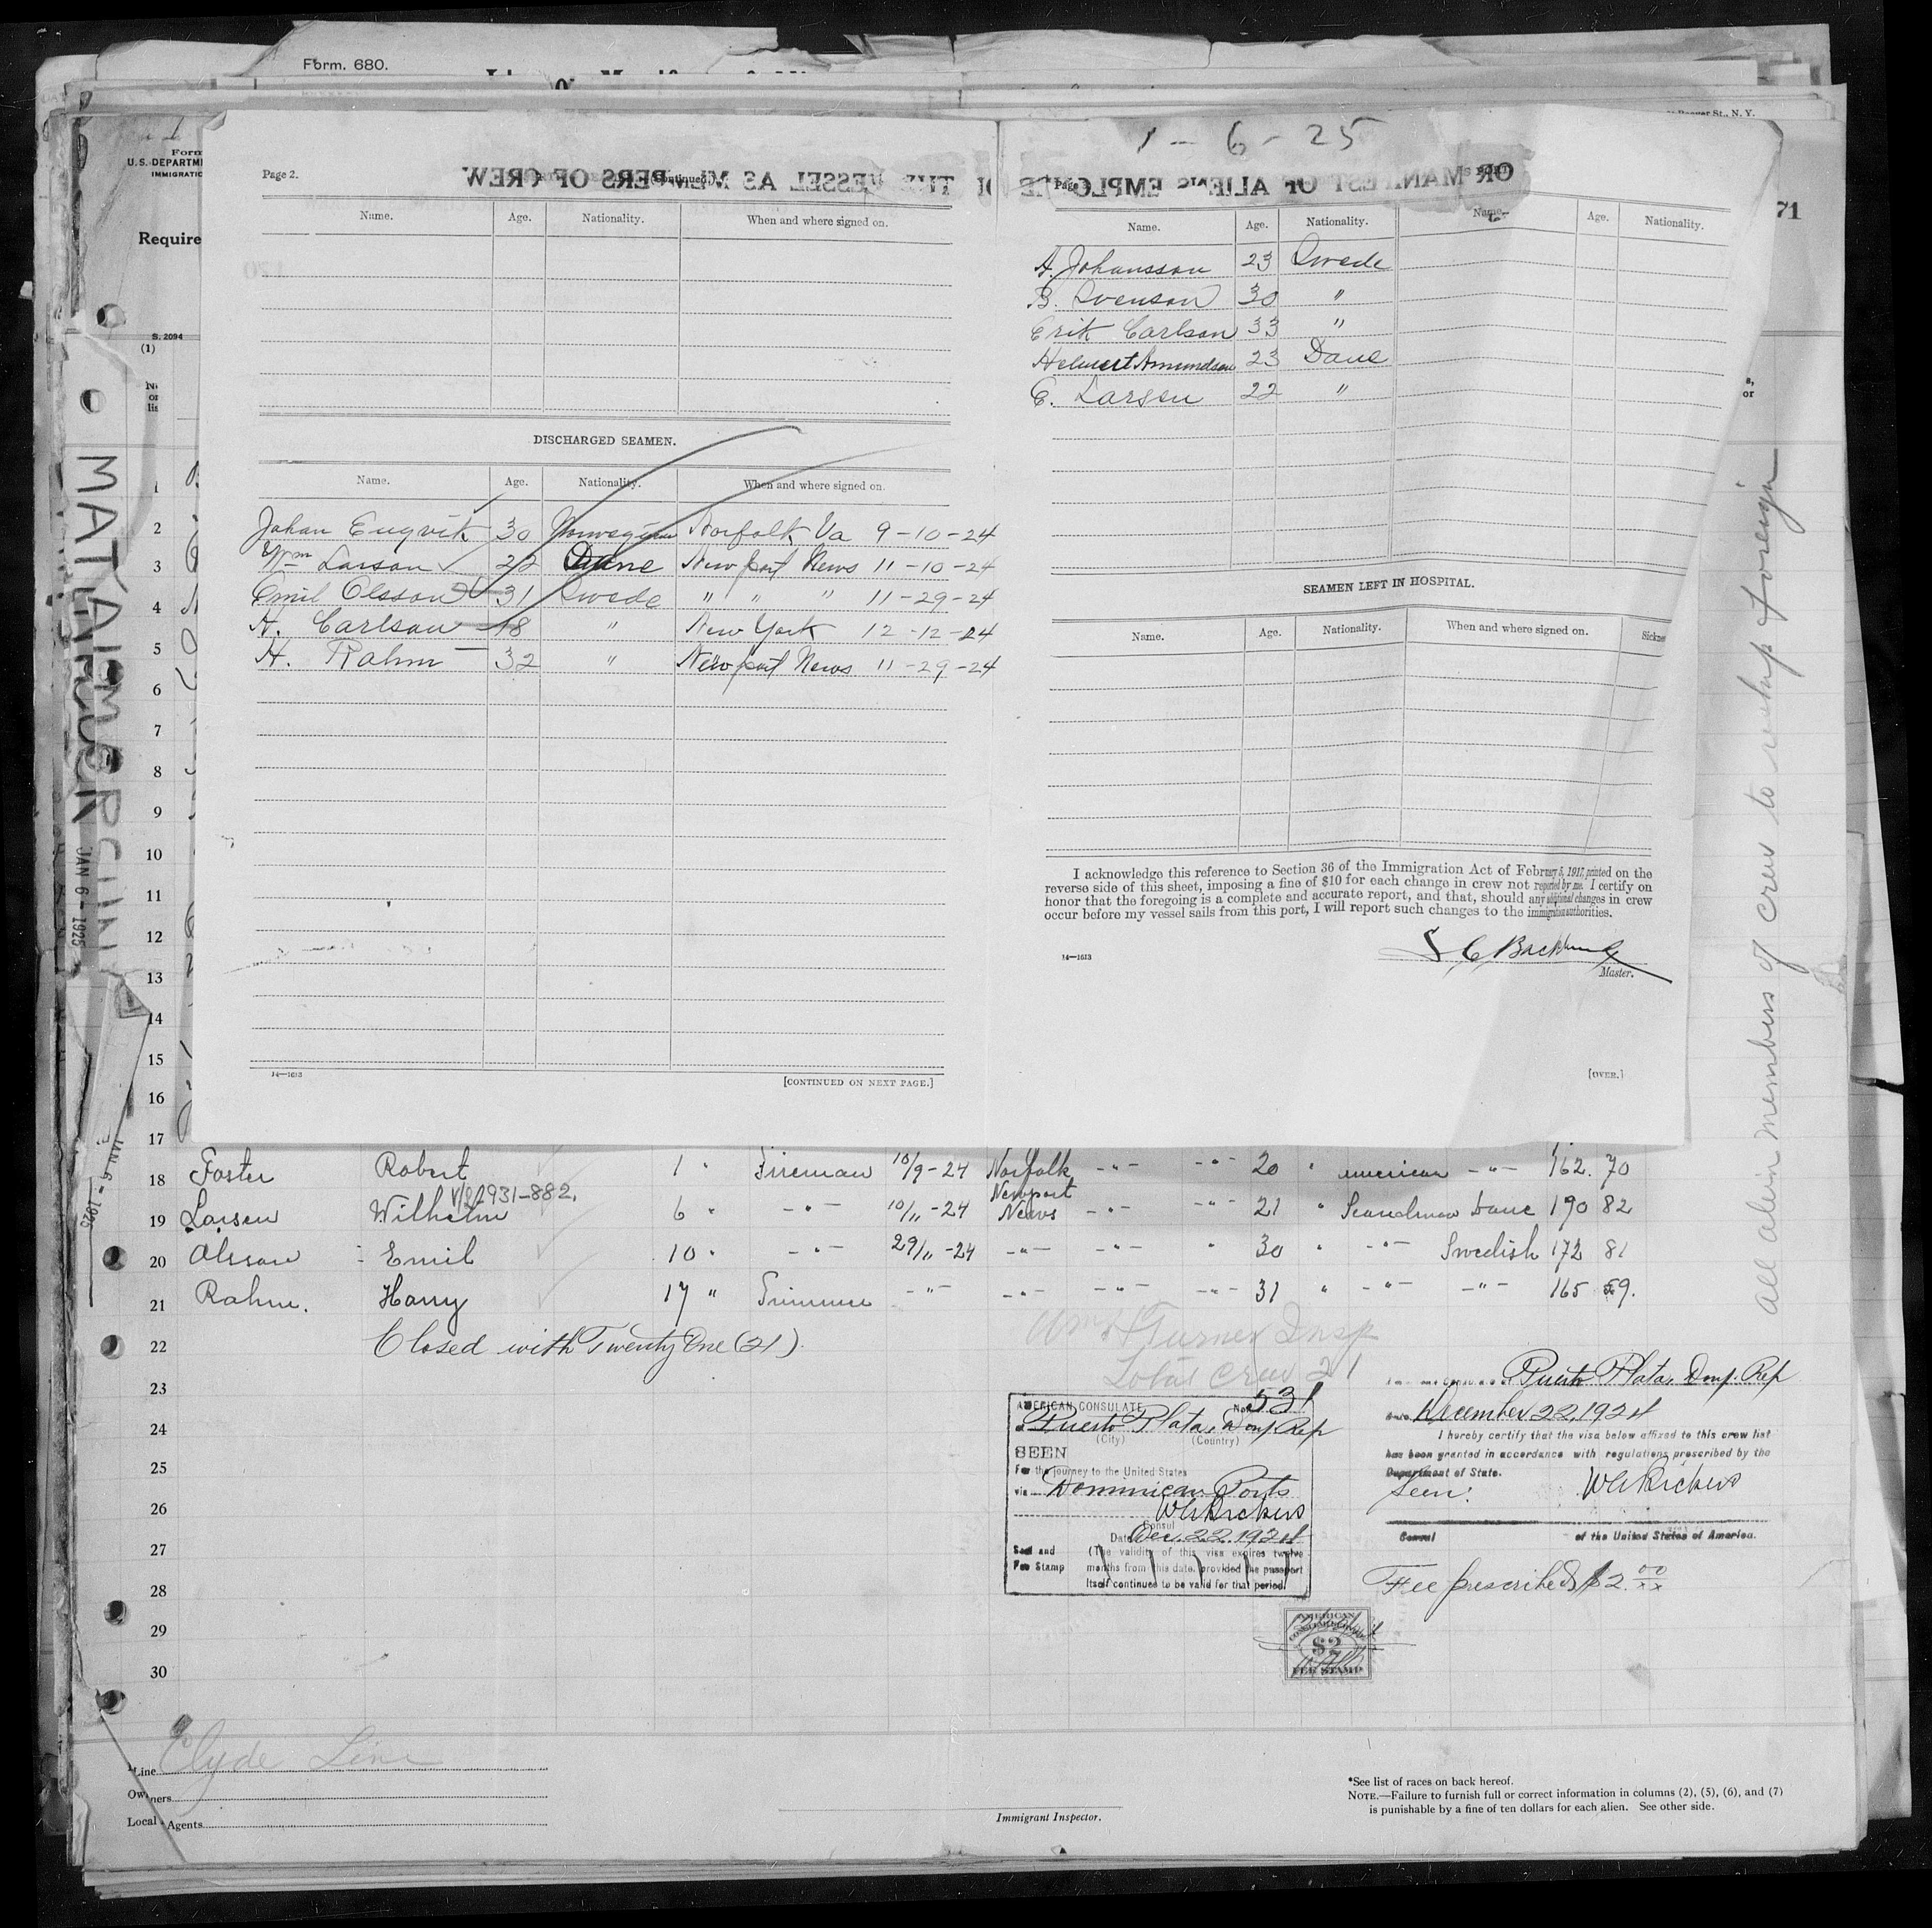 Form. 680.
1 - 6 - 25
Page 2.
(Continued)
OR MANIFEST OF ALIENS EMPLOYED ON THE VESSEL AS MEMBERS OF CREW
Name. Age. Nationality. When and where signed on.
DISCHARGED SEAMEN.
Name. Age. Nationality. When and where signed on.
Johan Engvik 30 Norwegian Norfolk Va 9-10-24
Wm Larson 22 Dane New port News 11-10-24
Emil Olsson 31 Swede " " " 11-29-24
H. Carlson 18 " New York 12-12-24
H. Rahm 32 " Newport News 11-29-24
14—1613
[CONTINUED ON NEXT PAGE.]
Page
Name. Age. Nationality. Name. Age. Nationality.
A. Johansson 23 Swede
B. Svenson 30 "
Erik Carlson 33 "
Helmert Amundsen 23 Dane
E. Larsen 22 "
SEAMEN LEFT IN HOSPITAL.
Name. Age. Nationality. When and where signed on.
I acknowledge this reference to Section 36 of the Immigration Act of February 5, 1917, printed on the
reverse side of this sheet, imposing a fine of $10 for each change in crew not reported by me. I certify on
honor that the foregoing is a complete and accurate report, and that, should any additional changes in crew
occur before my vessel sails from this port, I will report such changes to the immigration authorities.
14—1613
Master.
[OVER.]
Form
U. S. DEPARTM
IMMIGRATIO
Require
71
S. 2094
(1)
JAN 6 - 1925
All alien members of crew to reship foreign
1
2
3
4
5
6
7
8
9
10
11
12
13
14
15
16
17
18 Foster Robert 1 " Fireman 10/9-24 Norfolk -"- -"- 20 " American -"- 162. 70
931-882.
19 Larsen Wilhelm 6 " -"- 10/11-24 Newport News -"- -"- 21 " Scandinav Dane 190 82
20 Olsson Emil 10 " -"- 29/11-24 -"- -"- " 30 " -"- Swedish 172 81
21 Rahm. Harry 17 " Trimmer -"- -"- -"- -"- 31 " -"- -"- 165 59.
22 Closed with Twenty One (21).
23
24
25
26
27
28
29
30
Wm H Turner Insp
Total Crew 21
AMERICAN CONSULATE No. 531
at Puerto Plata, Dom, Rep
(City) (Country)
SEEN
For the journey to the United States
via Dominican Ports
Consul
Date Dec. 22. 1924
Seal and
Fee Stamp
(The validity of this visa expires twelve
months from this date, provided the passport
itself continues to be valid for that period.
Puerto Plata, Dom. Rep
Date December 22, 1924
I hereby certify that the visa below affixed to this crew list
has been granted in accordance with regulations prescribed by the
Department of State.
Seen:
Consul of the United States of America.
Fee prescribed $2.00
AMERICAN
$2
FEE STAMP
*Line Clyde Line
Owners
Local Agents
Immigrant Inspector.
*See list of races on back hereof.
NOTE.—Failure to furnish full or correct information in columns (2), (5), (6), and (7)
is punishable by a fine of ten dollars for each alien. See other side.